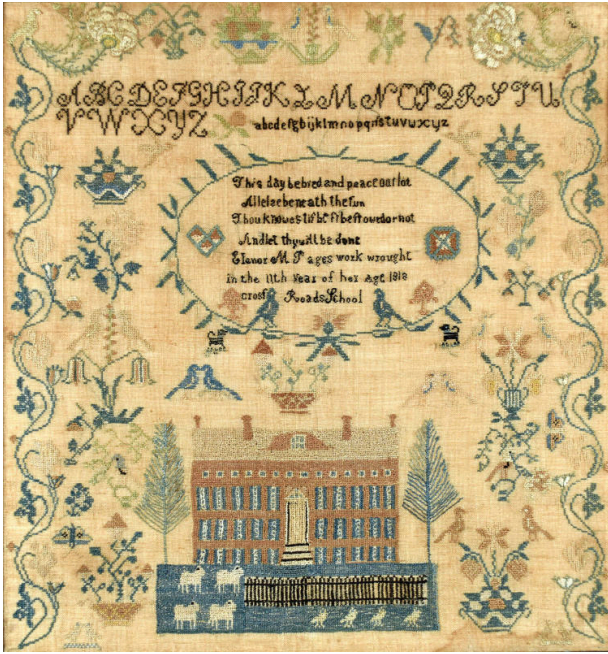 A B C D E F G H I J K L M N O P Q R S T U
V W X Y Z
abcdefghijklmnopqrstuvwxyz
This day be bred and peace our lot
All else beneath the sun
Thou knowest if best bestowed or not
And let thy will be done
Elanor M Pages work wrought
in the 11th year of her age 1818
cross Roads School